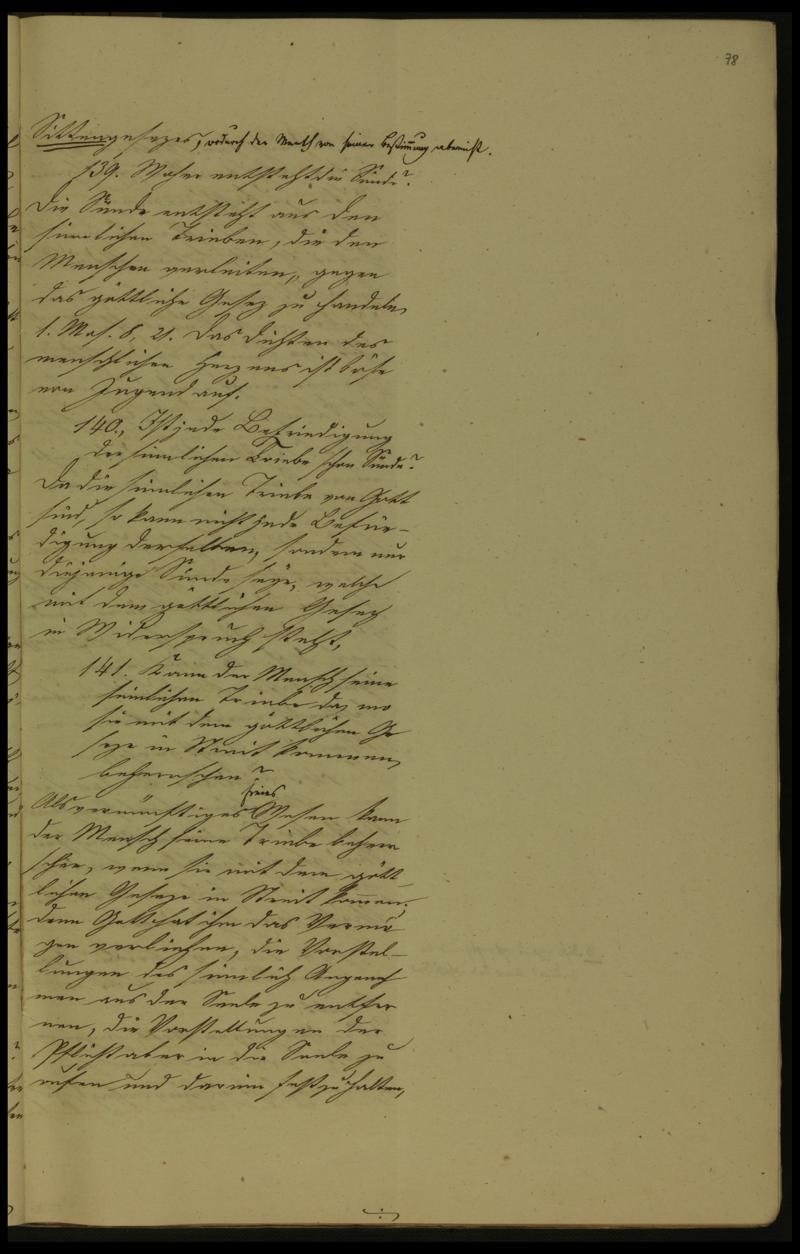 78
Sittengesezes, wodurch der Mensch von seiner Bestimmung abweicht.
139. Woher entsteht die Sünde?
Die Sünde entsteht aus den
sinnlichen Trieben, die den
Menschen verleiten, gegen
das göttliche Gesez zu handeln,
1. Mos. 8, 21. Das Dichten des
menschlichen Herzens ist böse
von Jugend auf.
140., Ist jede Befriedigung
der sinnlichen Triebe schon Sünde?
Da die sinnlichen Triebe von Gott
sind, so kann nicht jede Befrie-
digung derselben, sondern nur
diejenige Sünde seye, welche
mit dem göttlichen Gesez
in Widerspruch steht,
141. Kann der Mensch seine
sinnlichen Triebe da, wo
sie mit dem göttlichen Ge
seze in Streit kommen,
beherrschen?
Als vernünftiges freies Wesen kann
der Mensch seine Triebe beherr
schen, wenn sie mit dem gött-
lichen Geseze in Streit kommen;
denn Gott hat ihm das Vermö
gen verliehen, die Vorstel-
lungen des sinnlich Angeneh
men aus der Seele zu entfer
nen, die Vorstellungen der
Pflicht aber in die Seele zu
rufen und darinn festzuhalten,